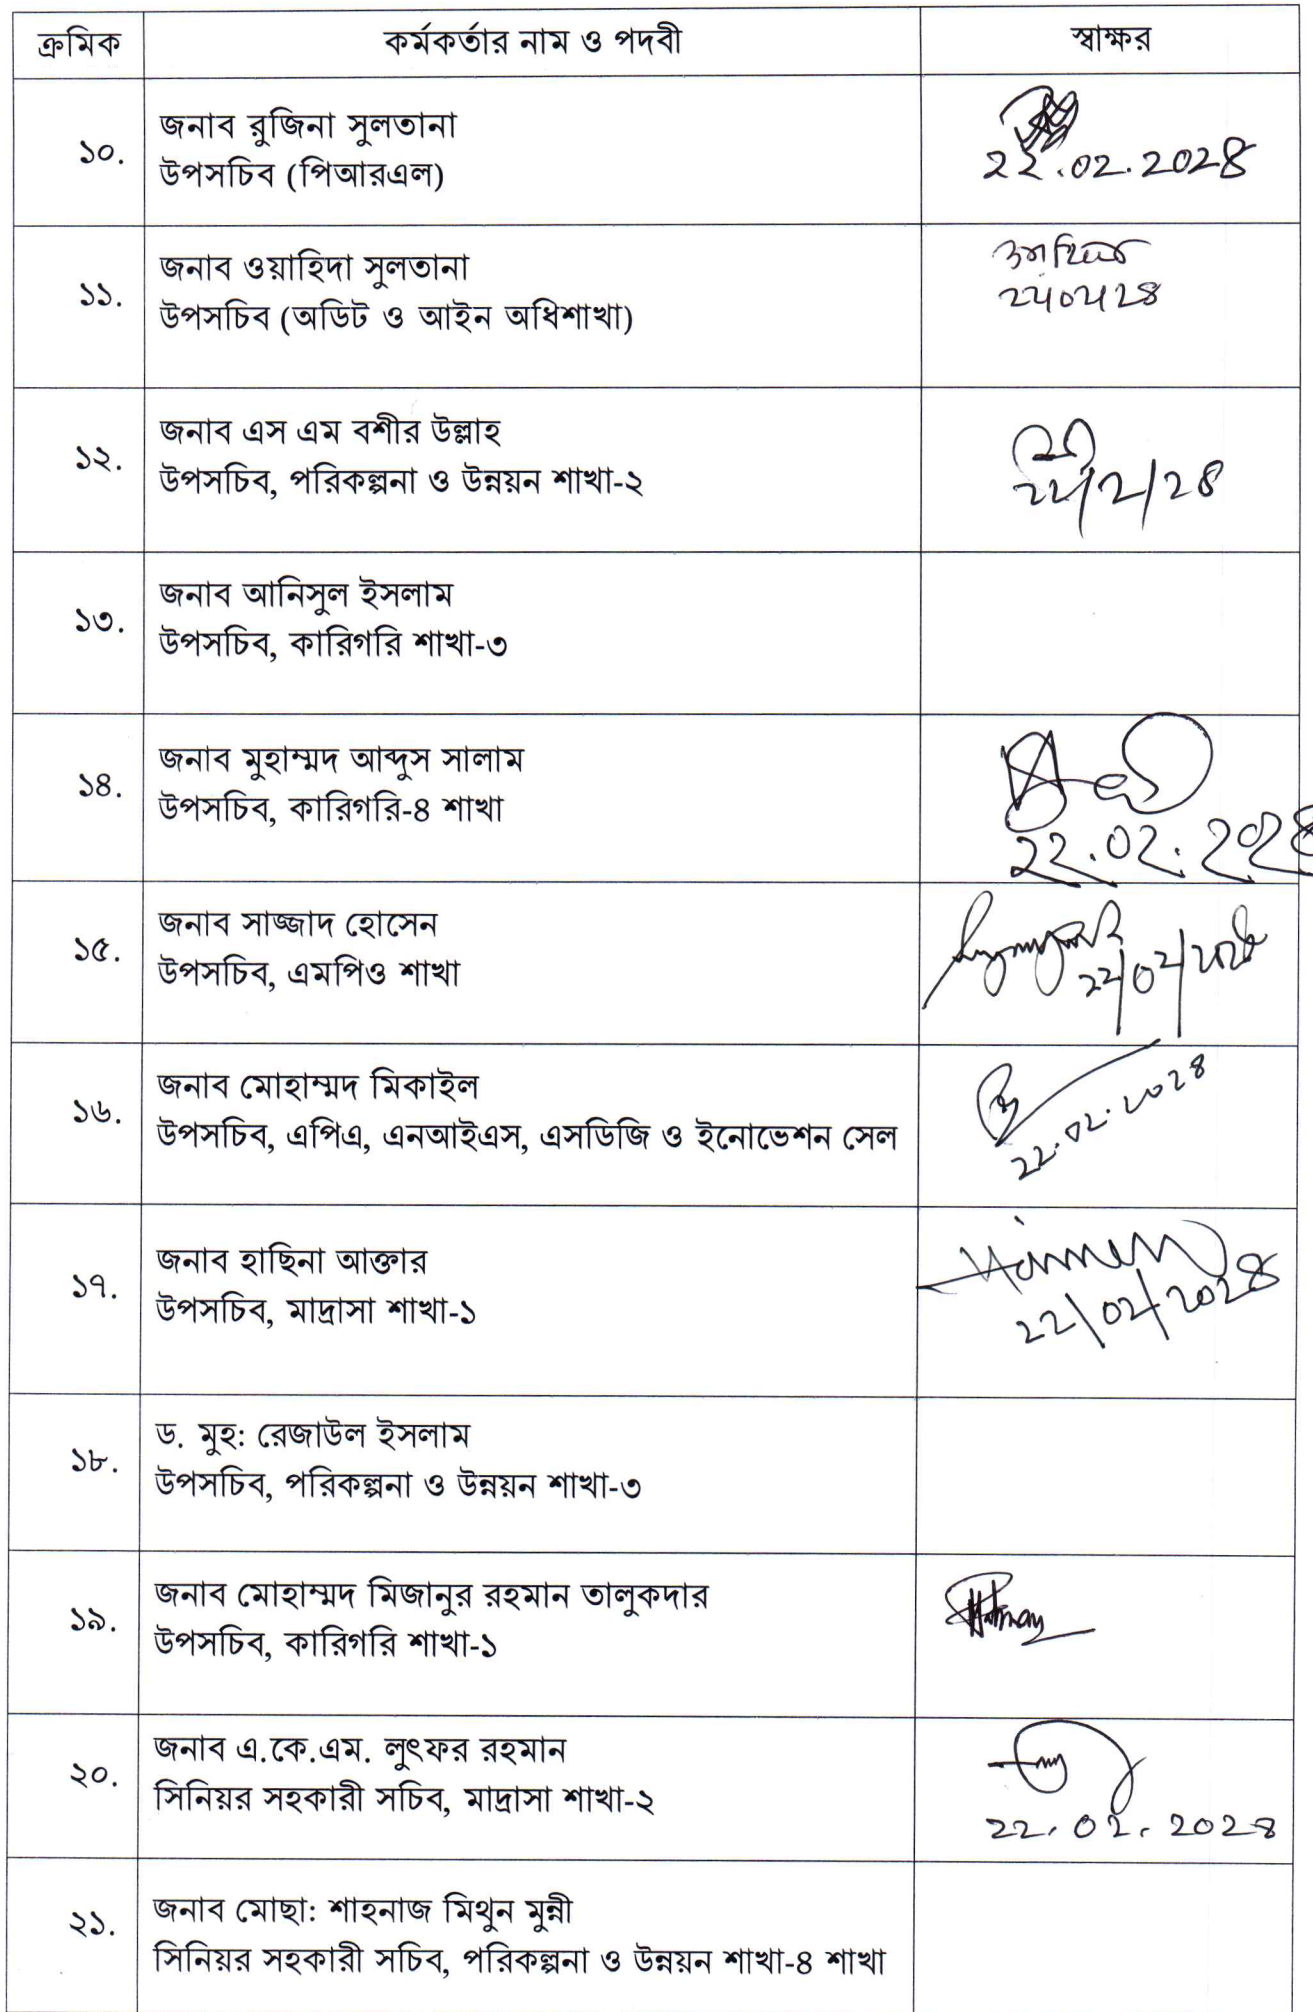 ক্রমিক কর্মকর্তার নাম ও পদবী স্বাক্ষর
১০. জনাব রুজিনা সুলতানা
উপসচিব (পিআরএল)
২২.০২.২০২৪
১১. জনাব ওয়াহিদা সুলতানা
উপসচিব (অডিট ও আইন অধিশাখা)
১২. জনাব এস এম বশীর উল্লাহ
উপসচিব, পরিকল্পনা ও উন্নয়ন শাখা-২
২২/২/২৪
১৩. জনাব আনিসুল ইসলাম
উপসচিব, কারিগরি শাখা-৩
১৪. জনাব মুহাম্মদ আব্দুস সালাম
উপসচিব, কারিগরি-৪ শাখা
২২.০২.২০২৪
১৫. জনাব সাজ্জাদ হোসেন
উপসচিব, এমপিও শাখা
২২/০২/২০২৪
১৬. জনাব মোহাম্মদ মিকাইল
উপসচিব, এপিএ, এনআইএস, এসডিজি ও ইনোভেশন সেল
২২.০২.২০২৪
১৭. জনাব হাছিনা আক্তার
উপসচিব, মাদ্রাসা শাখা-১
২২/০২/২০২৪
১৮. ড. মুহ: রেজাউল ইসলাম
উপসচিব, পরিকল্পনা ও উন্নয়ন শাখা-৩
১৯. জনাব মোহাম্মদ মিজানুর রহমান তালুকদার
উপসচিব, কারিগরি শাখা-১
২০. জনাব এ.কে.এম. লুৎফর রহমান
সিনিয়র সহকারী সচিব, মাদ্রাসা শাখা-২
২২.০২.২০২৪
২১. জনাব মোছা: শাহনাজ মিথুন মুন্নী
সিনিয়র সহকারী সচিব, পরিকল্পনা ও উন্নয়ন শাখা-৪ শাখা